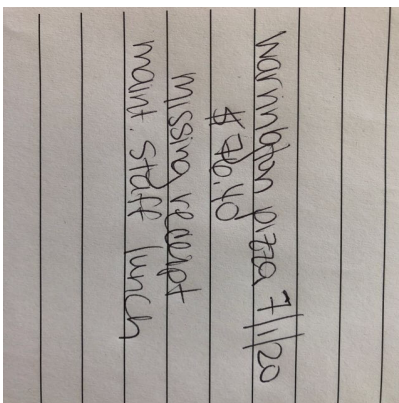 Warrington pizza 7/1/20
$76.40
missing receipt
maint. staff lunch